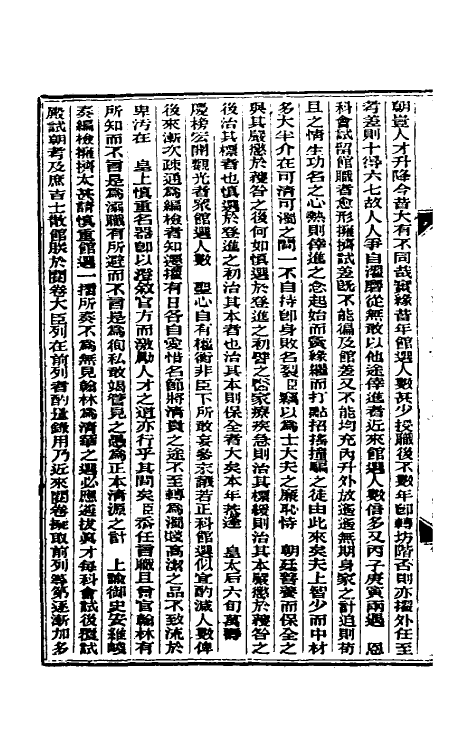 朝豈人才升降今昔大有不同哉實緣昔年館選人數甚少授職後不數年即轉坊階否則亦擢外任至
考差則十得六七故人人爭自濯磨從無敢以他途倖進者近來館選人數倍多又丙子庚寅兩遇　恩
科會試留館職者愈形擁擠試差既不能徧及館差又不能均充內升外放遙遙無期身家之計迫則苟
且之情生功名之心熱則倖進之念起始而夤緣繼而打點招搖撞騙之徒由此來矣夫上智少而中材
多大半介在可清可濁之間一不自持即身敗名裂臣竊以為士大夫之廉恥恃　朝廷督養而保全之
與其嚴懲於獲咎之後何如慎選於登進之初譬之醫家療疾急則治其標緩則治其本嚴懲於獲咎之
後治其標者也慎選於登進之初治其本者也治其本則保全者大矣本年恭逢　皇太后六旬萬壽
慶榜宏開觀光者眾館選人數　聖心自有權衡非臣下所敢妄參末議若正科館選似宜酌減人數俾
後來漸次疏通為編檢者知遷擢有日各自愛惜名節將清貴之途不至轉為濁競高潔之品不致流於
卑汚在　皇上慎重名器即以澄敘官方而激勵人才之道亦行乎其間矣臣忝任言職且言官翰林有
所知而不言是為溺職有所避而不言是為徇私敢竭管見之愚為正本清源之計　上諭御史安維峻
奏編檢擁擠太甚請慎重館選一摺所奏不為無見翰林為清華之選必應遴拔真才每科會試後覆試
殿試朝考及庶吉士散館朕於閱卷大臣列在前列者酌量錄用乃近來閱卷擬取前列等第逐漸加多